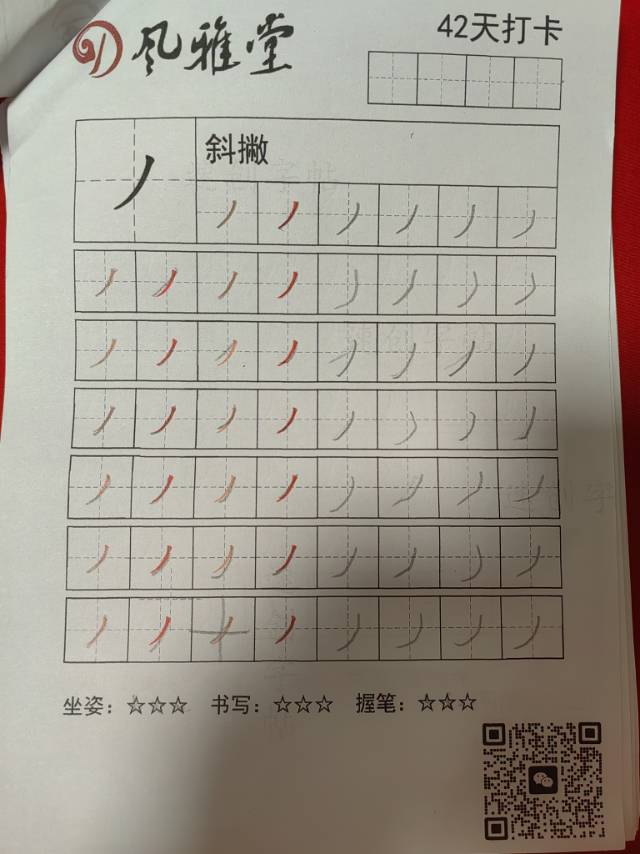 风雅堂
42天打卡
斜撇
坐姿：☆☆☆ 书写：☆☆☆ 握笔：☆☆☆